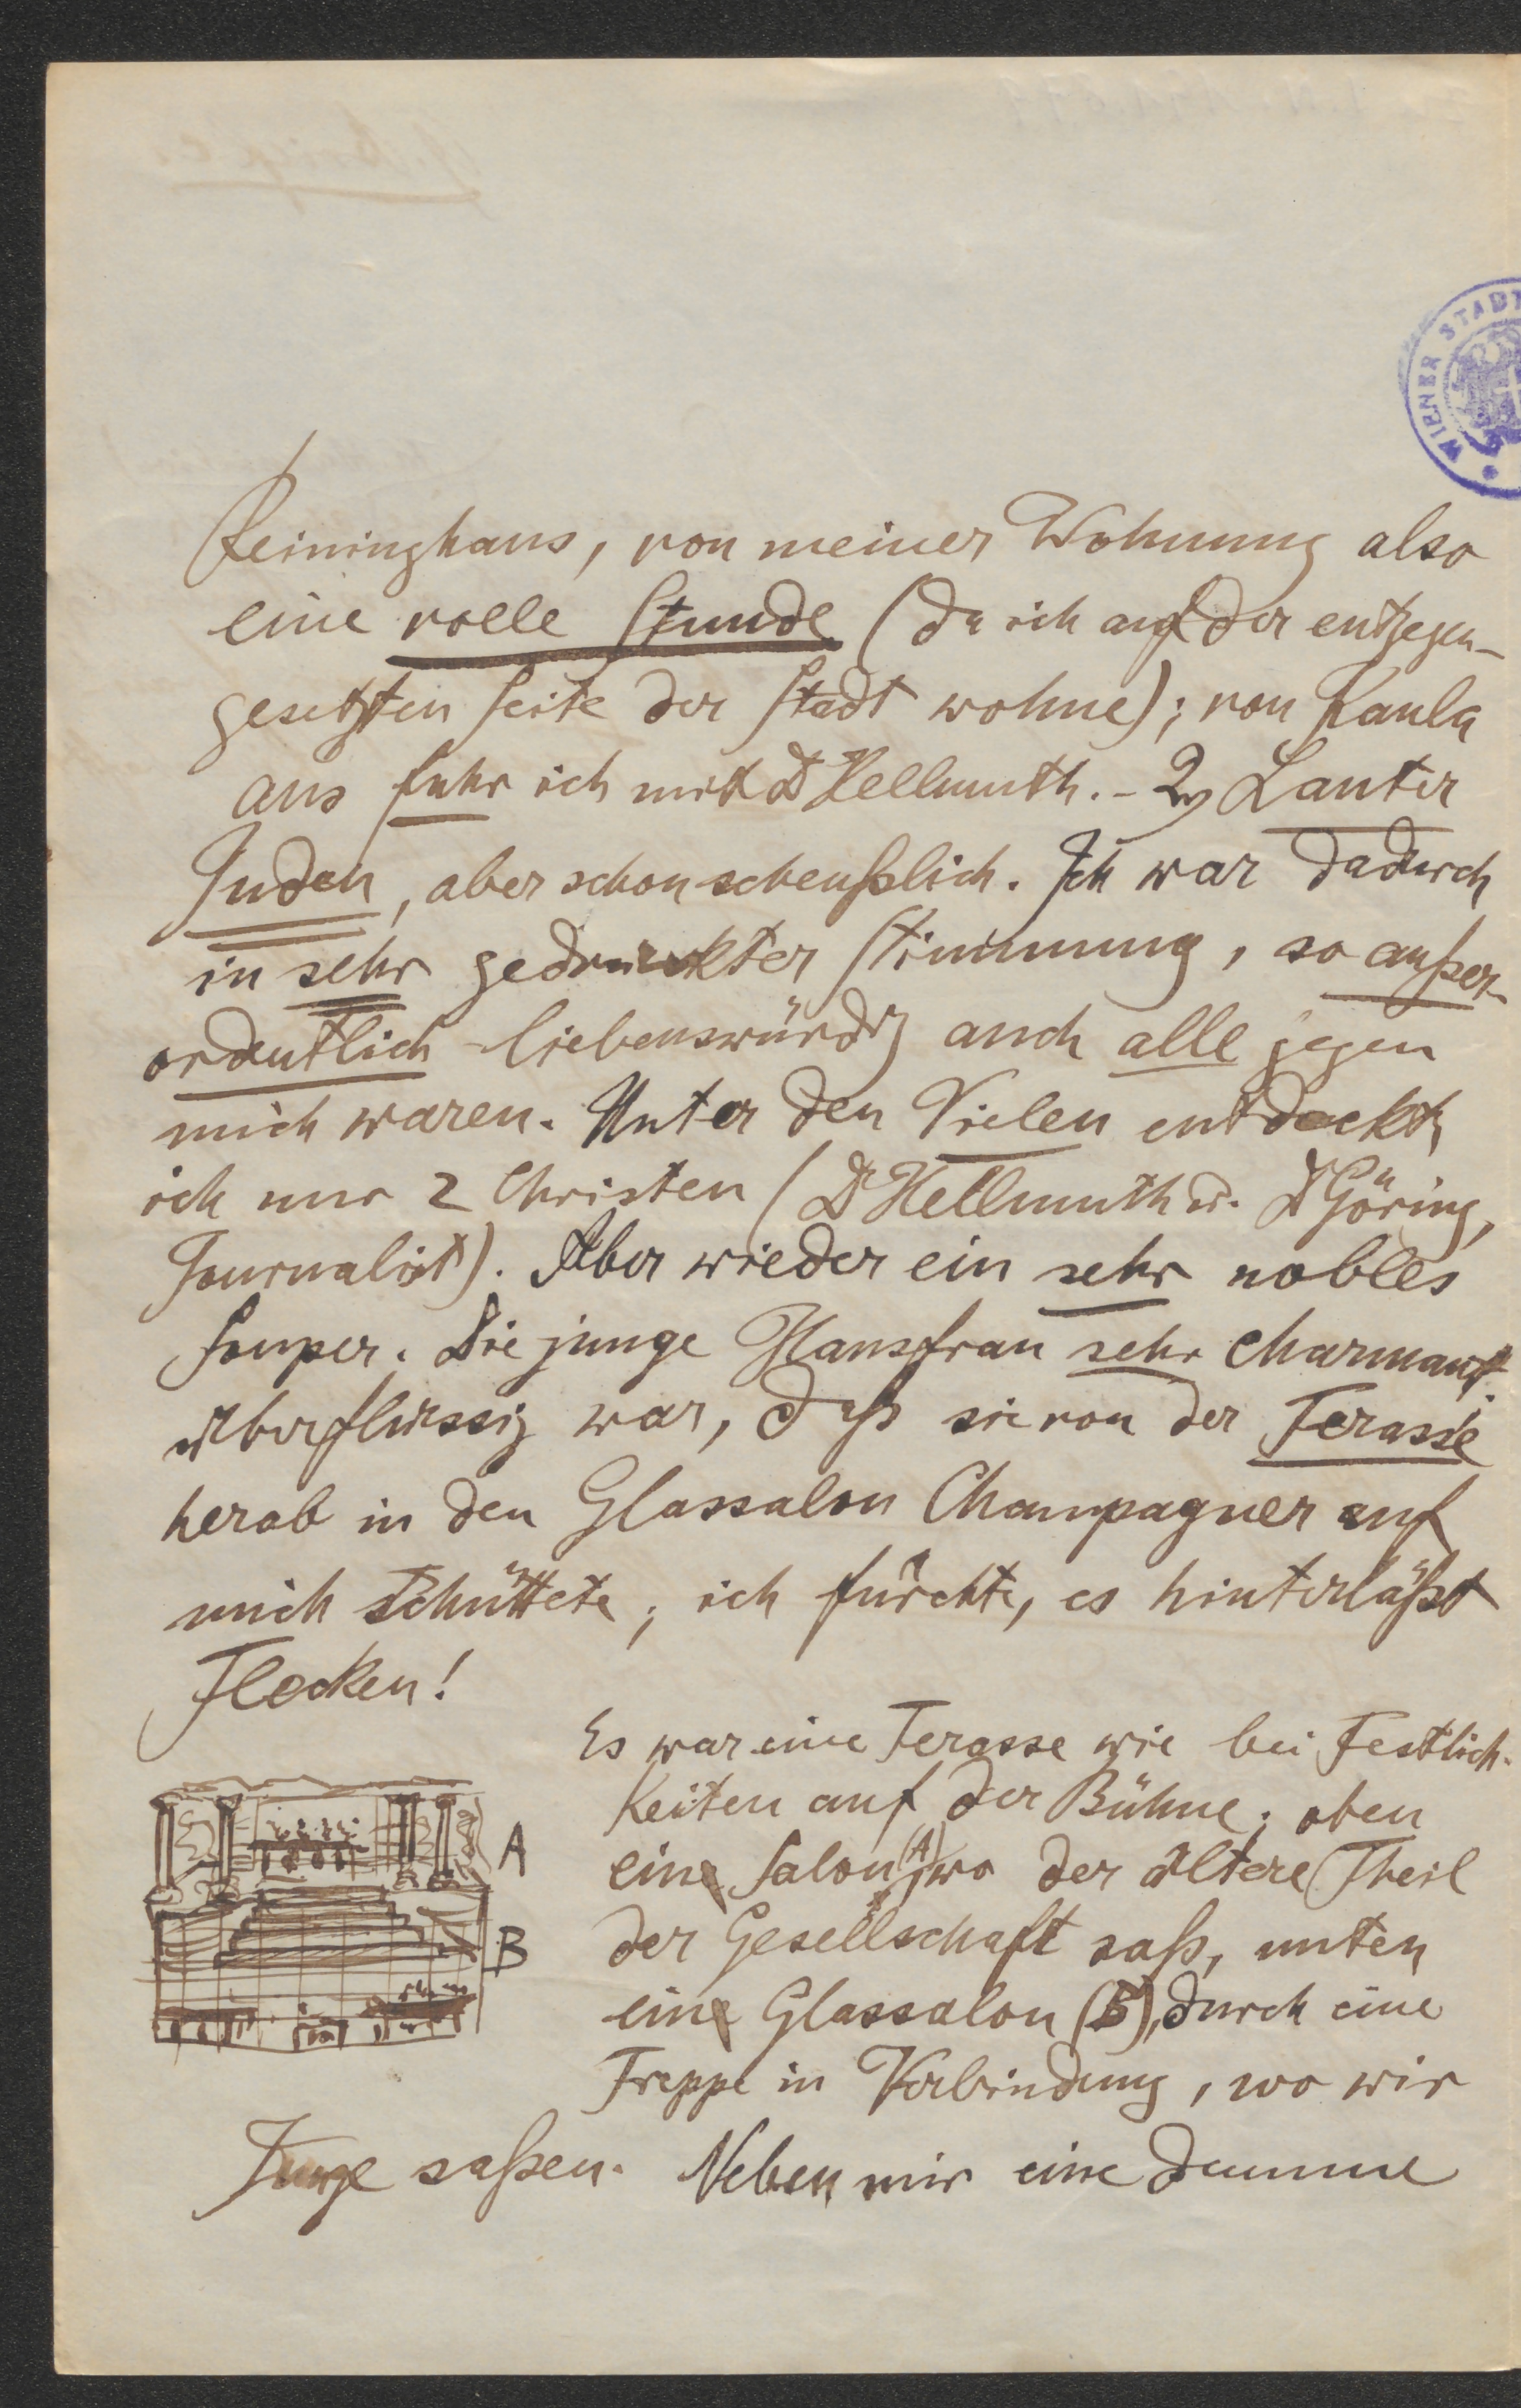 WIENER STADT
Reininghaus, von meiner Wohnung also
eine volle Stunde (da ich auf der entgegen-
gesetzten Seite der Stadt wohne); von Kaula
aus fuhr ich mit Dr Hellmuth. - 2) Lauter
Juden, aber schon scheußlich. Ich war dadurch
in sehr gedruckter Stimmung, so außer-
ordentlich liebenswürdig auch alle gegen
mich waren. Unter den Vielen entdeckte
ich nur 2 Christen (Dr Hellmuth u. Dr Göring,
Journalist). Aber wieder ein sehr nobles
Souper. Die junge Hausfrau sehr charmant.
überflüssig war, daß sie von der Terasse
herab in den Glassalon Champagner auf
mich schüttete; ich fürchte, es hinterläßt
Flecken!
Es war eine Terasse wie bei Festlich-
keiten auf der Bühne; oben
ein Salon (A), wo der ältere Theil
der Gesellschaft saß, unten
ein Glassalon (B), durch eine
Treppe in Verbindung, wo wir
Junge saßen. Neben mir eine dumme
A
B